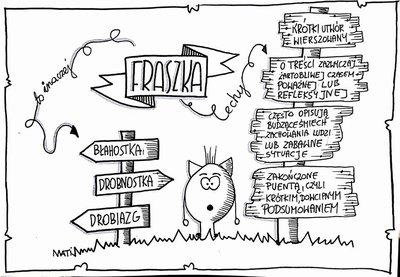 FRASZKA
to inaczej
BŁAHOSTKA,
DROBNOSTKA
DROBIAZG
cechy
KRÓTKI UTWÓR
WIERSZOWANY
O TREŚCI ZAZWYCZAJ
ŻARTOBLIWEJ CZASEM
POWAŻNEJ LUB
REFLEKSYJNEJ
CZĘSTO OPISUJĄ
BUDZĄCE ŚMIECH
ZACHOWANIA LUDZI
LUB ZABAWNE
SYTUACJE
ZAKOŃCZONE
PUENTĄ, CZYLI
KRÓTKIM, DOWCIPNYM
PODSUMOWANIEM